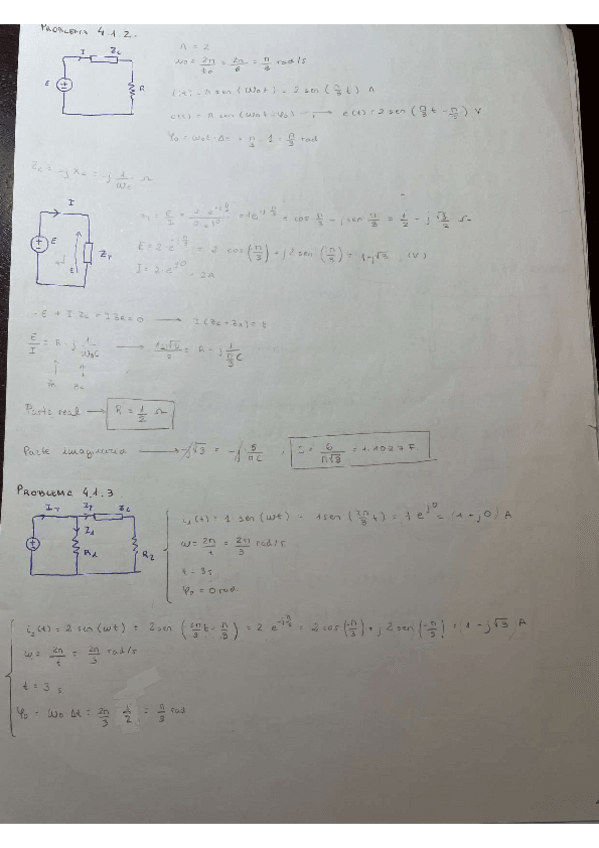 PROBLEMA 4.1.2.
I Zc
E R
A = 2
ω0 = 2π/t0 = 2π/6 = π/3 rad/s
i(t) = A sen (ω0t) = 2 sen (π/3 t) A
e(t) = A sen (ω0t - φ0) → e(t) = 2 sen (π/3 t - π/3) V
φ0 = ω0t · Δt = π/3 · 1 = π/3 rad
Zc = -j Xc = -j 1/ωc Ω
I
E ZT
E = 2 · e^-jπ/3 = 2 cos(π/3) - j 2 sen (π/3) = 1-j√3 (V)
I = 2 · e^j0 = 2A
-E + I Zc + I ZR = 0 → I (Zc + ZR) = E
E/I = R - j 1/ω0c → 1-j√3/2 = R - j 1/(π/3 C)
ZR Zc
Parte real → R = 1/2 Ω
Parte imaginaria → -j√3 = -j 5/πC ; C = 6/π√3 = 1.1027 F
PROBLEMA 4.1.3
IT I2 ZL
I1
R1 R2
i1(t) = 1 sen (ωt) = 1 sen (2π/3 t) = 1 e^j0 = (1 + j0) A
ω = 2π/t = 2π/3 rad/s
t = 3 s
φ0 = 0 rad
i2(t) = 2 sen (ωt) = 2 sen (2π/3 t - π/3) = 2 e^-jπ/3 = 2 cos(-π/3) + j 2 sen (-π/3) = 1 - j√3 A
ω = 2π/t = 2π/3 rad/s
t = 3 s
φ0 = ω0 Δt = 2π/3 · 1/2 = π/3 rad